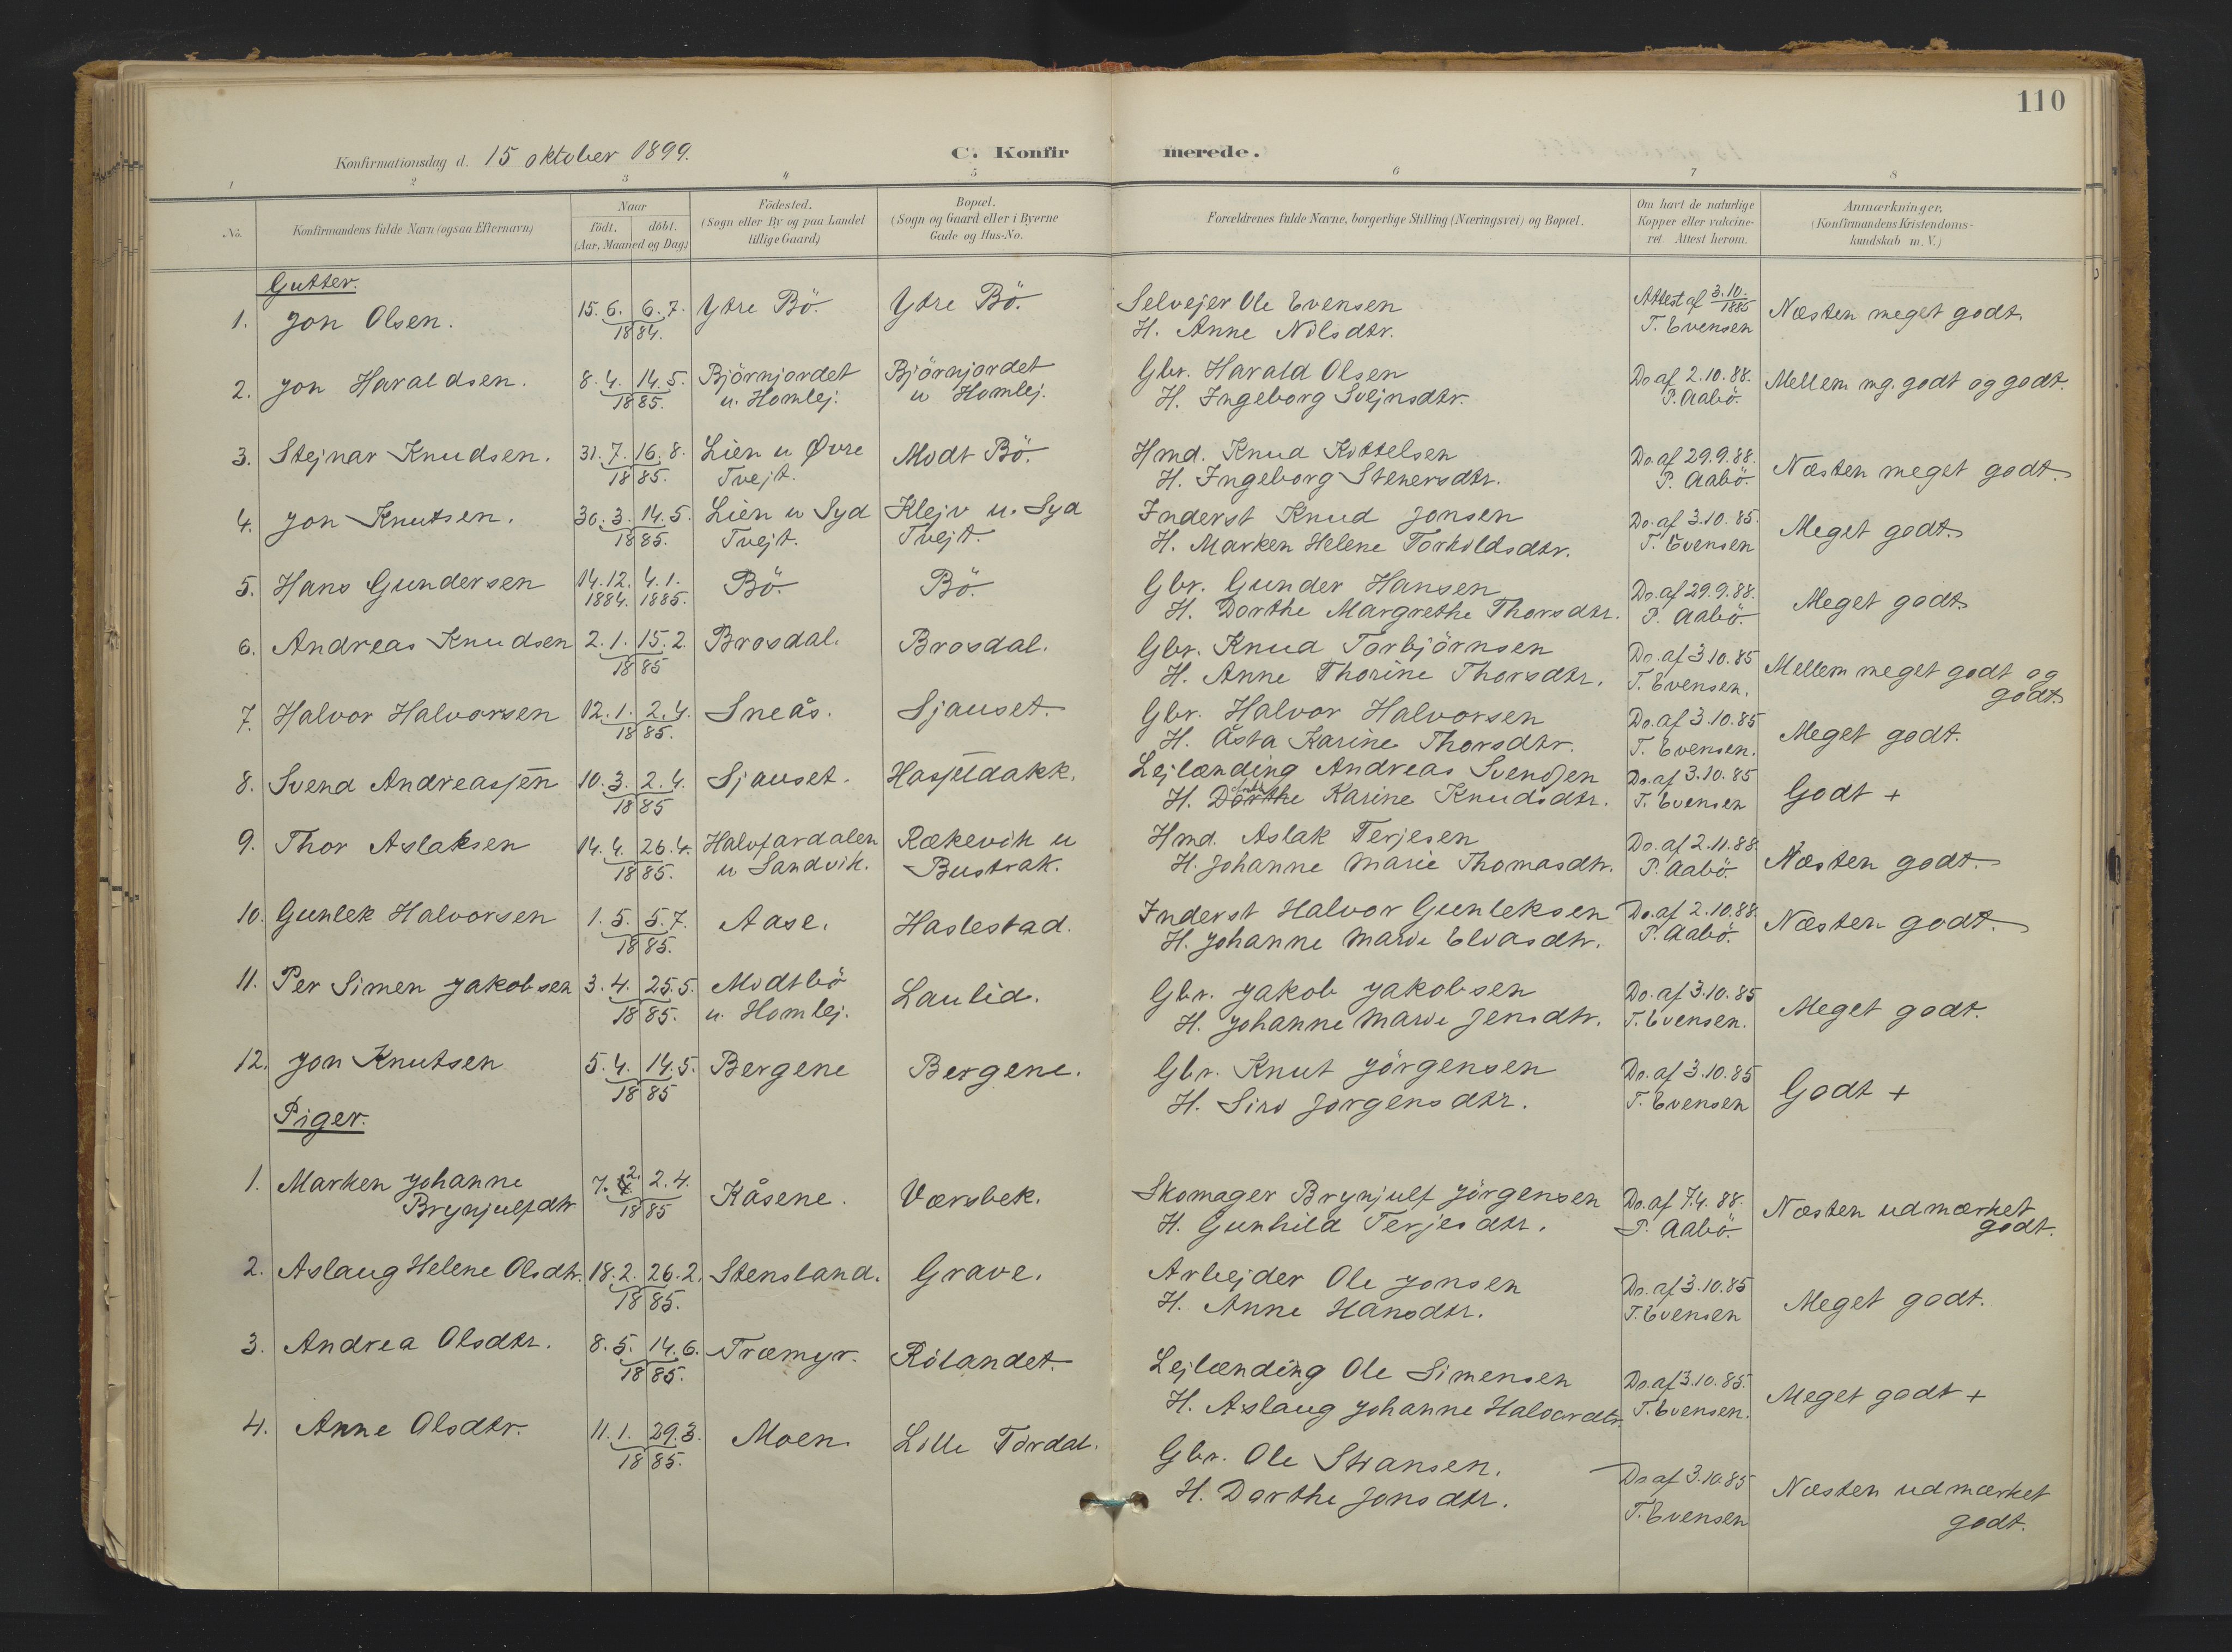 110
Konfirmationsdag d. 15 oktober 1899. C. Konfirmerede.
1 2 3 4 5 6 7 8
No. Konfirmandens fulde Navn (ogsaa Efternavn) Naar födt. döbt. (Aar, Maaned og Dag) Födested. (Sogn eller By og paa Landet tillige Gaard) Bopæl. (Sogn og Gaard eller i Byerne Gade og Hus-No. Forældrenes fulde Navne, borgerlige Stilling (Næringsvei) og Bopæl. Om havt de naturlige Kopper eller vakcineret. Attest herom. Anmærkninger. (Konfirmandens Kristendomskundskab m. V.)
Gutter.
1. Jon Olsen. 15.6. 6.7. 1884. Ytre Bö. Ytre Bö. Selvejer Ole Evensen Attest af 3.10. 1885 Næsten meget godt.
H. Anne Nilsdtr. T. Evensen
2. Jon Haraldsen. 8.4. 14.5. 1885. Björnjordet Björnjordet Gbr. Harald Olsen Do af 2.10.88. Mellem mg. godt og godt.
u. Homlej. u Homlej. H. Ingeborg Svejnsdtr. P. Aabö.
3. Stejnar Knudsen. 31.7. 16.8. 1885. Lien u Øvre Modt Bö. Hmd. Knud Kittelsen Do. af 29.9.88. Næsten meget godt.
Tvejt. H. Ingeborg Stenersdtr. P. Aabö.
4. Jon Knutsen. 30.3. 14.5. 1885. Lien u Syd Klejv u. Syd Inderst Knud Jonsen Do. af 3.10.85. Meget godt.
Tvejt. Tvejt. H. Marken Helene Torkildsdtr. T. Evensen
5. Hans Gundersen 14.12. 4.1. Bö. Bö. Gbr. Gunder Hansen Do. af 29.9.88. Meget godt
1884. 1885. H. Dorthe Margrethe Thorsdtr. P. Aabö.
6. Andreas Knudsen 2.1. 15.2. 1885 Brosdal. Brosdal. Gbr. Knud Torbjörnsen Do. af 3 10.85 Mellem meget godt og
H. Anne Thorine Thorsdtr. T. Evensen. godt.
7. Halvor Halvorsen 12.1. 2.4. 1885. Sneås. Sjauset. Gbr. Halvor Halvorsen Do. af 3.10.85 Meget godt.
H. Åsta Karine Thorsdtr. T. Evensen.
8. Svend Andreassen 10.3. 2.4. 1885 Sjauset. Lejlænding Andreas Svendsen Do. af 3.10.85 Godt +
H. Karine Knudsdtr. T. Evensen
9. Thor Aslaksen 14.4. 26.4. 1885. Halvfardalen Rækevik u Hmd. Aslak Terjesen Do. af 2.11.88. Næsten godt.
u Sandvik. Bustrak. H. Johanne Marie Thomasdtr. P. Aabö.
10. Gunlek Halvorsen 1.5. 5.7. 1885. Aase. Haslestad. Inderst Halvor Gunleksen Do. af 2.10.88. Næsten godt.
H. Johanne Marie Elvasdtr. P. Aabö.
11. Per Simen Jakobsen 3.4. 25.5. 1885. Modtbö Laulid. Gbr. Jakob Jakobsen Do. af 3.10.85 Meget godt.
u. Homlej. H. Johanne Marie Jensdtr. T. Evensen.
12. Jon Knutsen 5.4. 14.5. 1885 Bergene Bergene. Gbr. Knut Jörgensen Do. af 3.10.85 Godt +
H. Siri Jørgensdtr. T. Evensen
Piger.
1. Marken Johanne 7.2. 2.4. 1885 Kåsene. Værsbek. Skomager Brynjulf Jörgensen Do. af 7.4.88. Næsten udmærket
Brynjulfdtr H. Gunhild Terjesdtr. P. Aabö. godt.
2. Aslaug Helene Olsdtr. 18.2. 26.2. 1885. Stensland. Grave. Arbejder Ole Jonsen Do. af 3.10.85 Meget godt.
H. Anne Hansdtr. T. Evensen
3. Andrea Olsdtr. 8.5. 14.6. 1885. Træmyr. Rölandet. Lejlænding Ole Simensen Do. af 3.10.85. Meget godt +
H. Aslaug Johanne Halvordtr. T. Evensen.
4. Anne Olsdtr. 11.1. 29.3. 1885. Moen. Lille Tördal. Gbr. Ole Stiansen. Do af 3.10.85 Næsten udmærket
H. Dorthe Jonsdtr. T. Evensen godt.